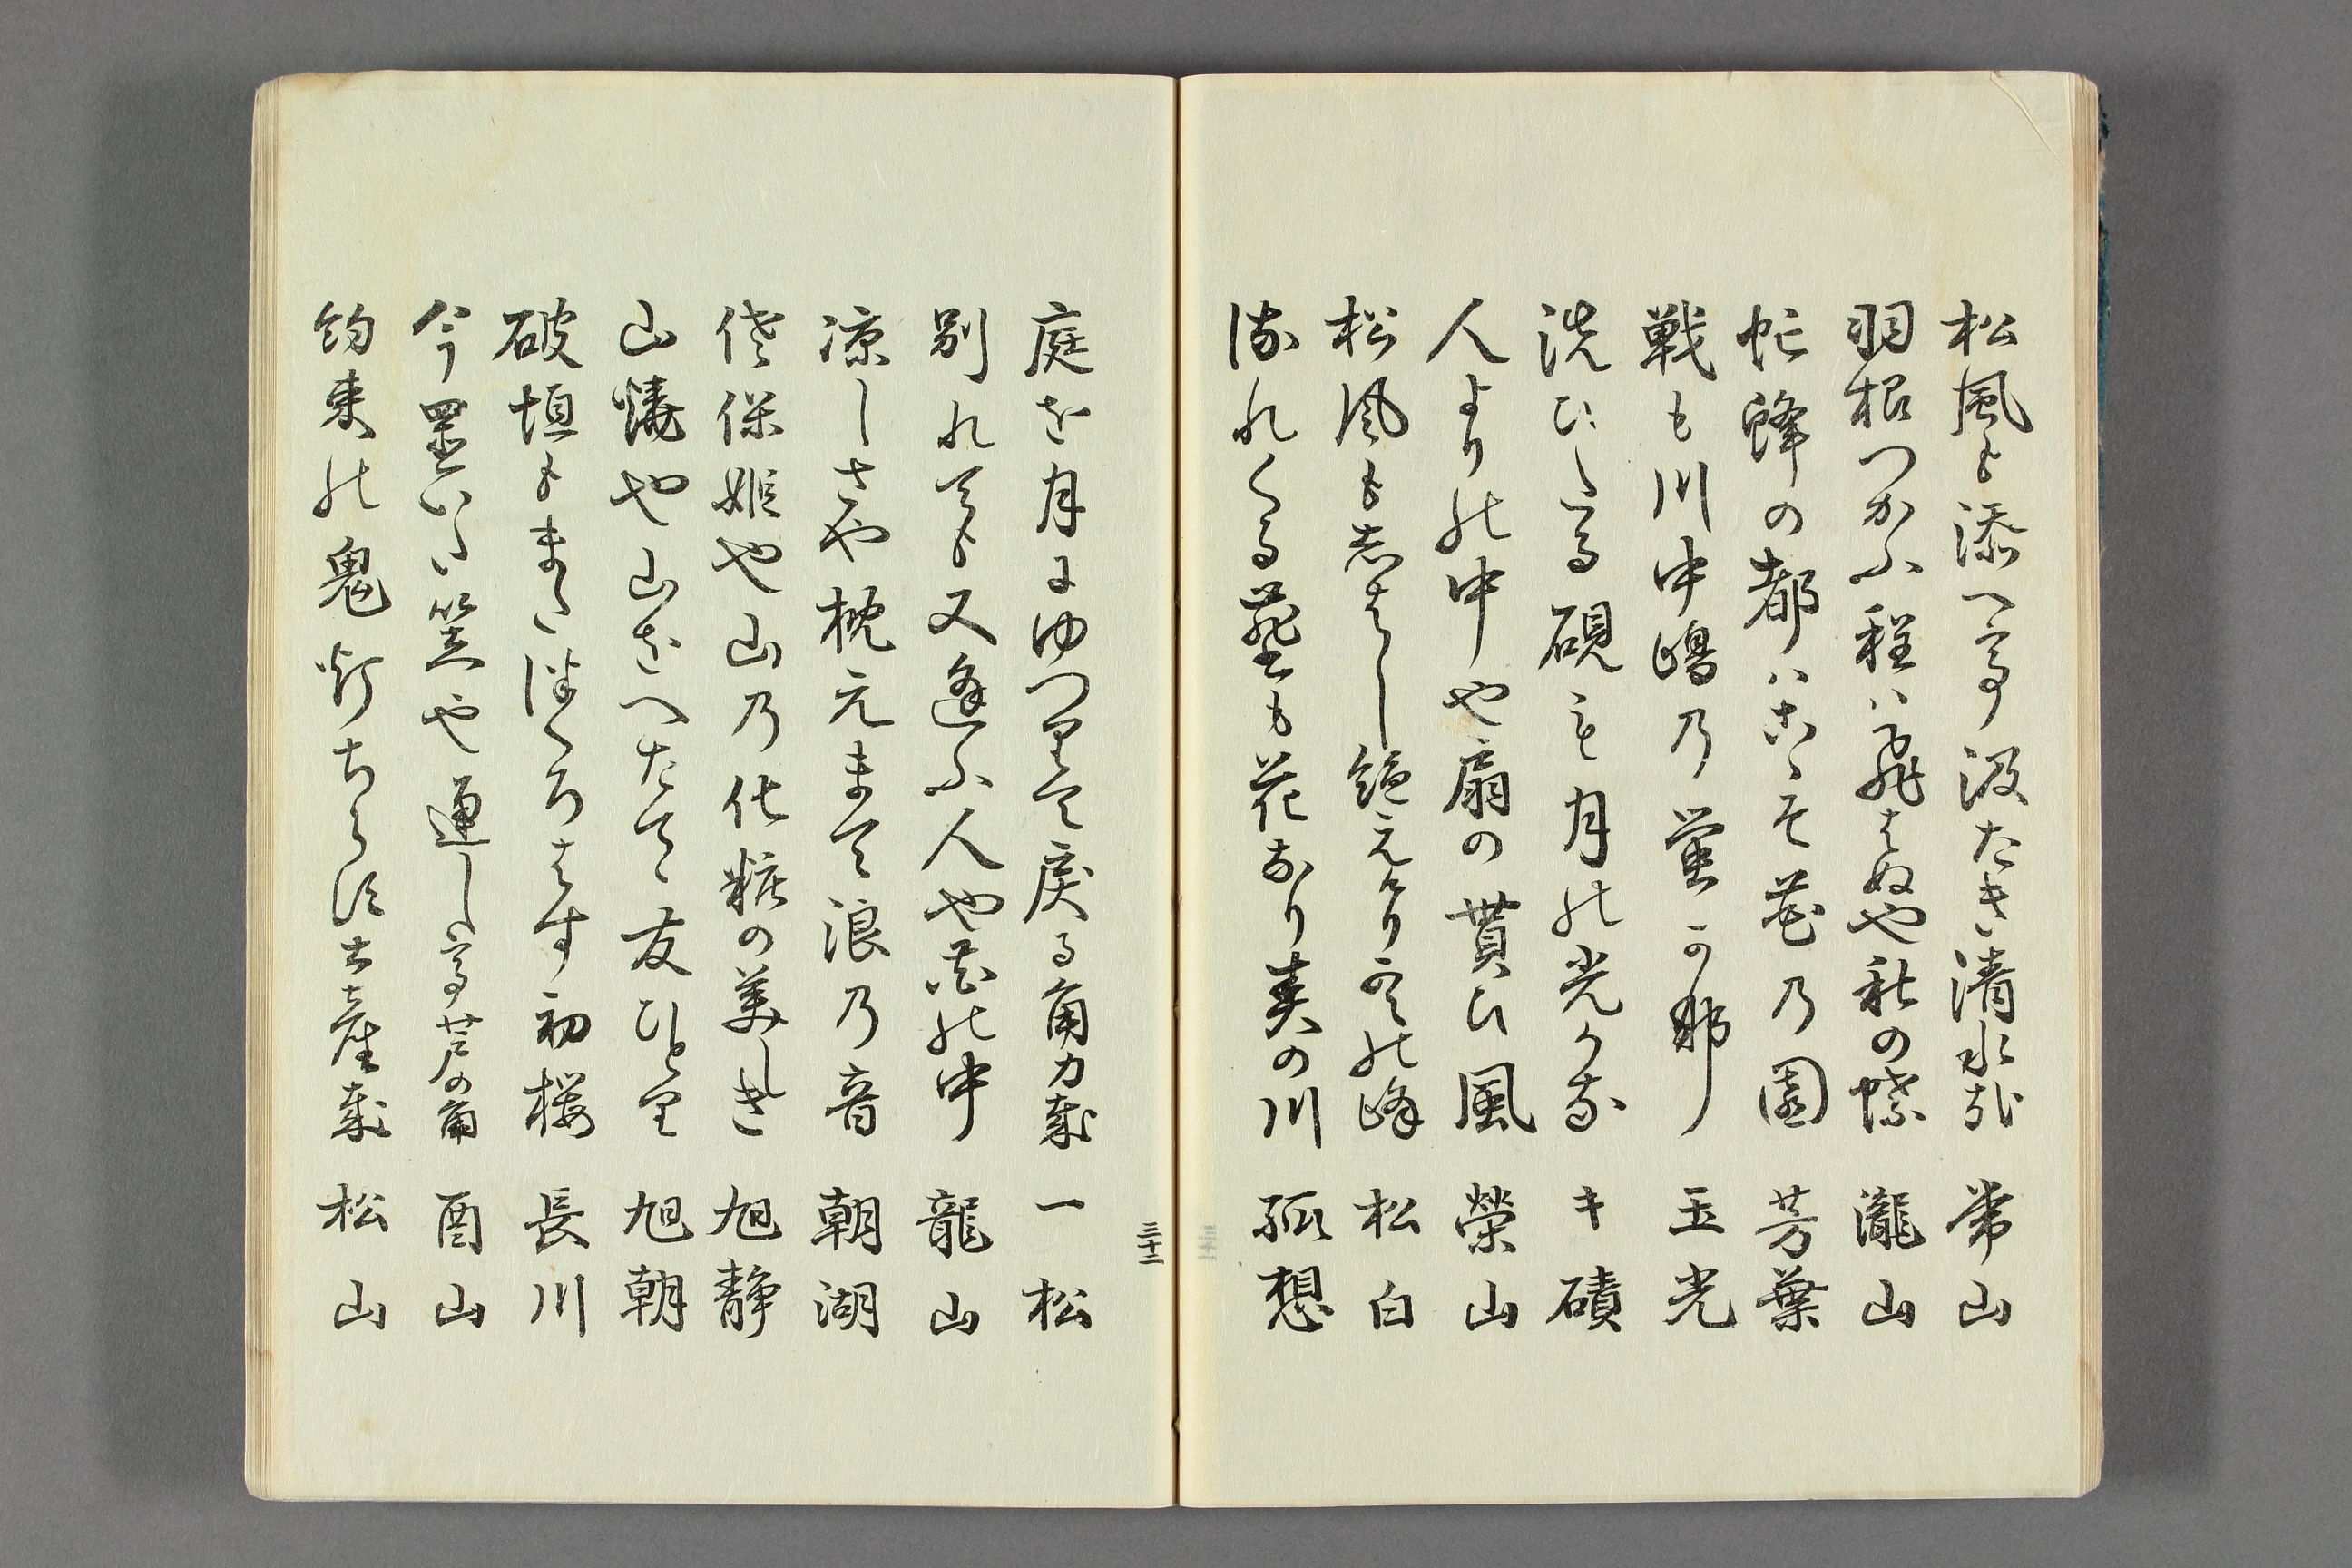 松風も添へて汲たき清水哉 常山
羽根つかふ程は飛はぬや秋の蝶 瀧山
忙蜂の都はこゝそ花乃園 芳葉
戦も川中嶋乃蛍可那 玉光
洗ひしる硯にも月の光かな キ磧
人よりの中や扇の貰ひ風 榮山
松風も志はし絶えけり雲の峰 松白
流れくる藻も花なり夏の川 孤想
三十二
庭を月にゆつりて戻る角力哉 一松
別れても又逢ふ人や花の中 龍山
凉しさや枕元まて浪乃音 朝湖
佐保姫や山乃化粧の美しき 旭静
山焼や山をへたてゝ友ひとり 旭朝
破垣もまた繕ろはす初桜 長川
今置いた笠や通して芦の角 酉山
約束の鬼灯ちらす土産哉 松山